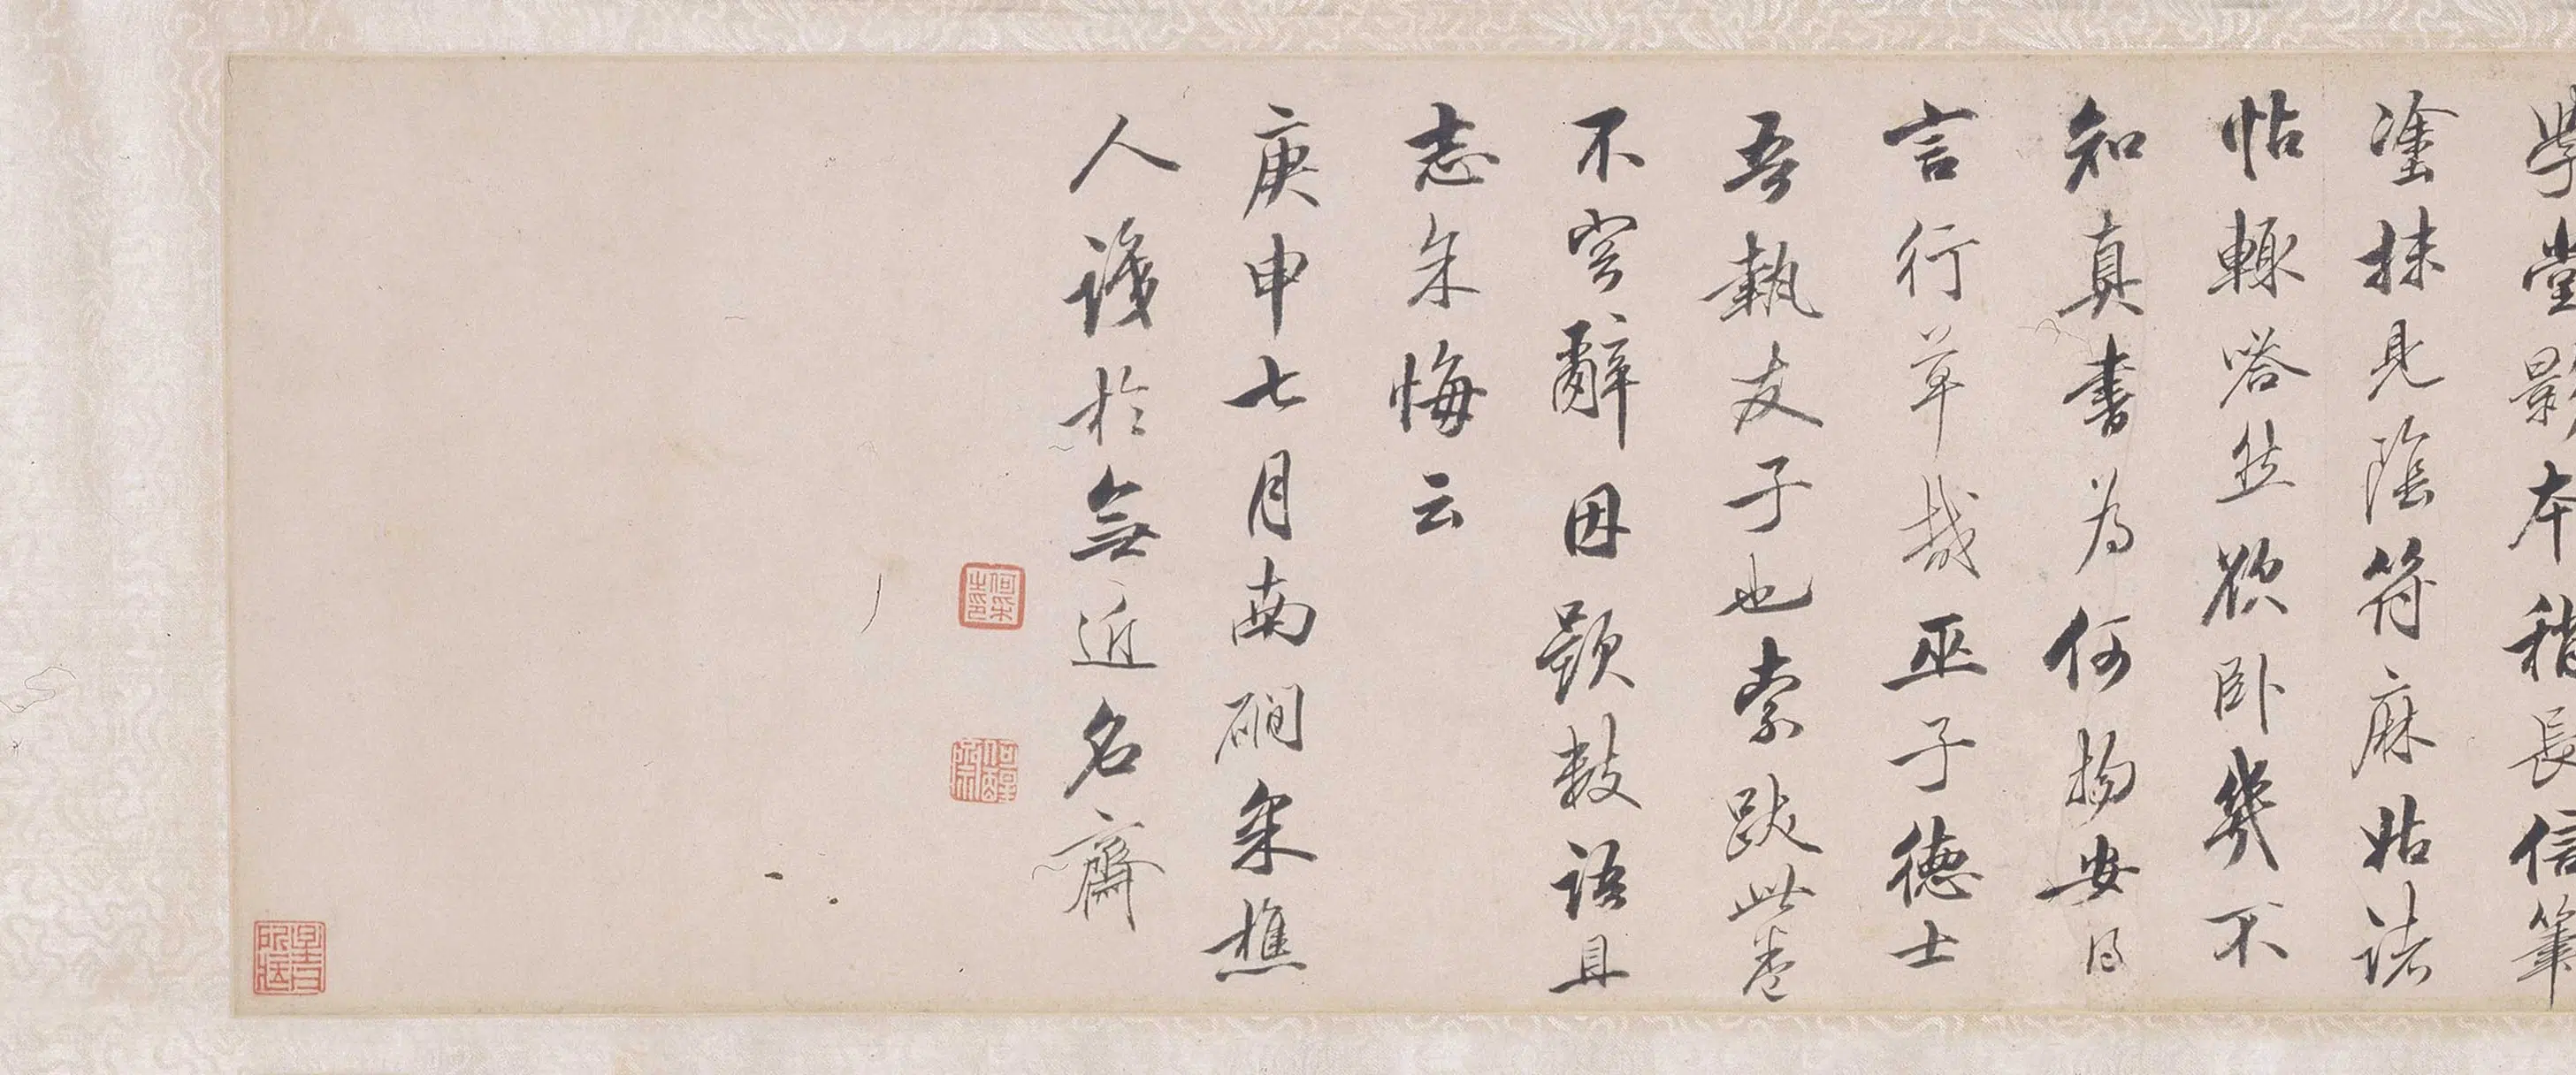 學堂影本稍長信筆
塗抹見陰符麻姑諸
帖輒嗒然欲臥幾不
知真書為何物安得
言行草哉巫子德士
吾執友子也索跋此卷
不容辭因題數語且
志余悔云
庚申七月南磵采樵
人識於無近名齋
何采之印
何醒所藏